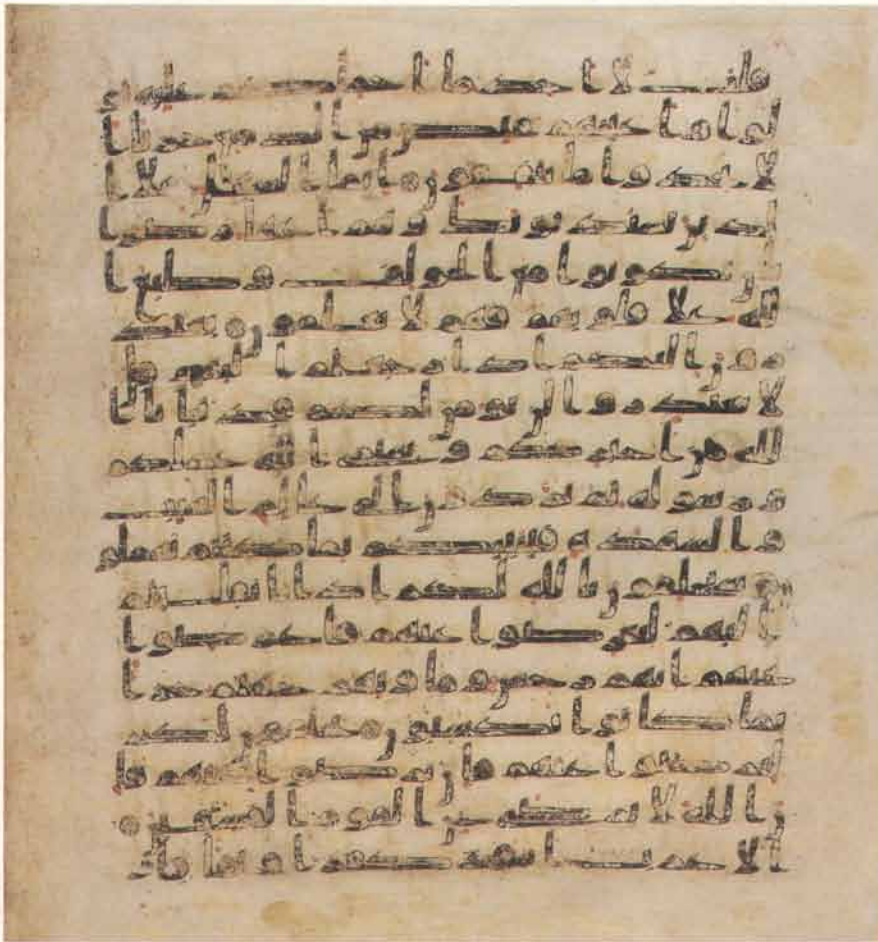 قلت لا اجد ما احملكم عليه تو
لوا واعينهم تفيض من الدمع حزنا ا
لا يجدوا ما ينفقون انما السبيل علا ا
لذين يستذنونك وهم اغنيا رضوا
بان يكونوا مع الخولف وطبع ا
لله علا قلوبهم فهم لا يعلمون يعتذ
رون اليكم اذا رجعتم اليهم قل
لا تعتذروا لن نومن لكم قد نبانا ا
لله من اخباركم وسيرى الله عملكم
ورسوله ثم تردون الى علم الغيب
والشهدة فينبئكم بما كنتم تعملو
ن سيحلفون بالله لكم اذا انقلبتم
اليهم لتعرضوا عنهم فاعرضوا
عنهم انهم رجس وماويهم جهنم جزا
بما كانوا يكسبون يحلفون لكم
لترضوا عنهم فان ترضوا عنهم فا
ن الله لا يرضى عن القوم الفسقين
الاعراب اشد كفرا ونفاقا